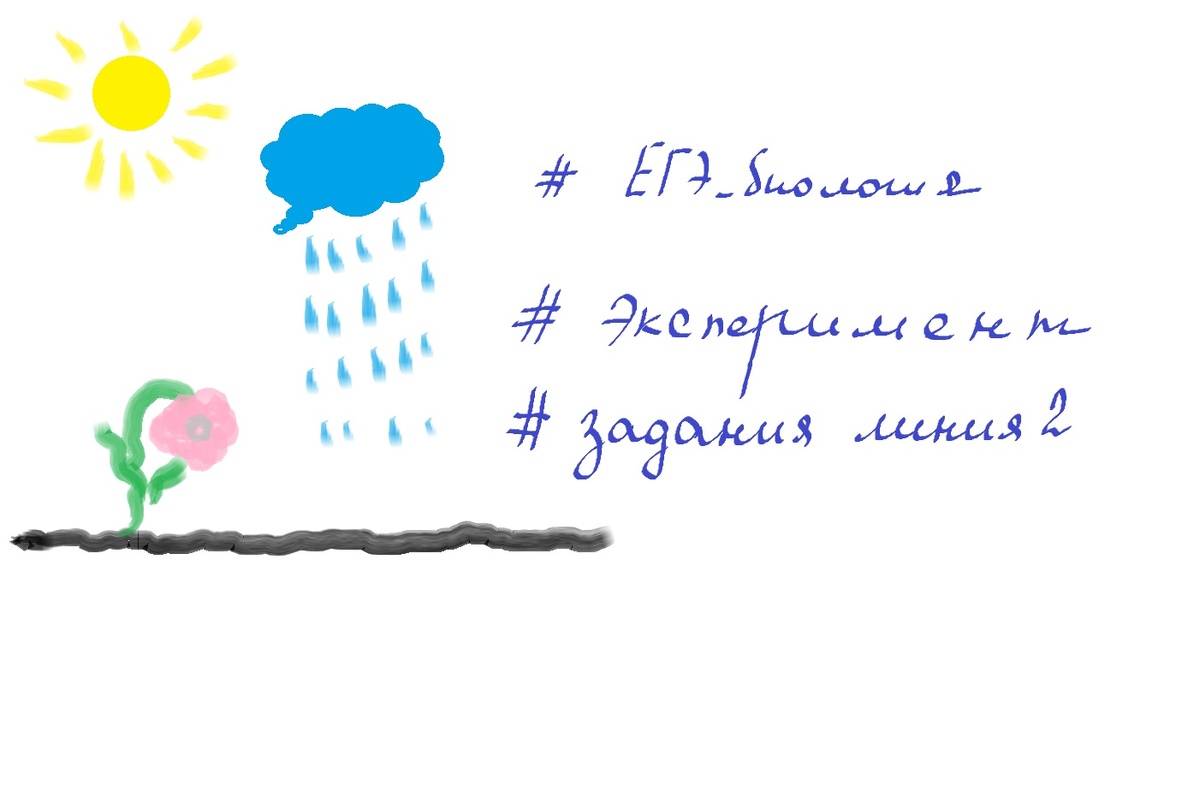 # ЕГЭ_биология
# Эксперимент
# задания линия 2